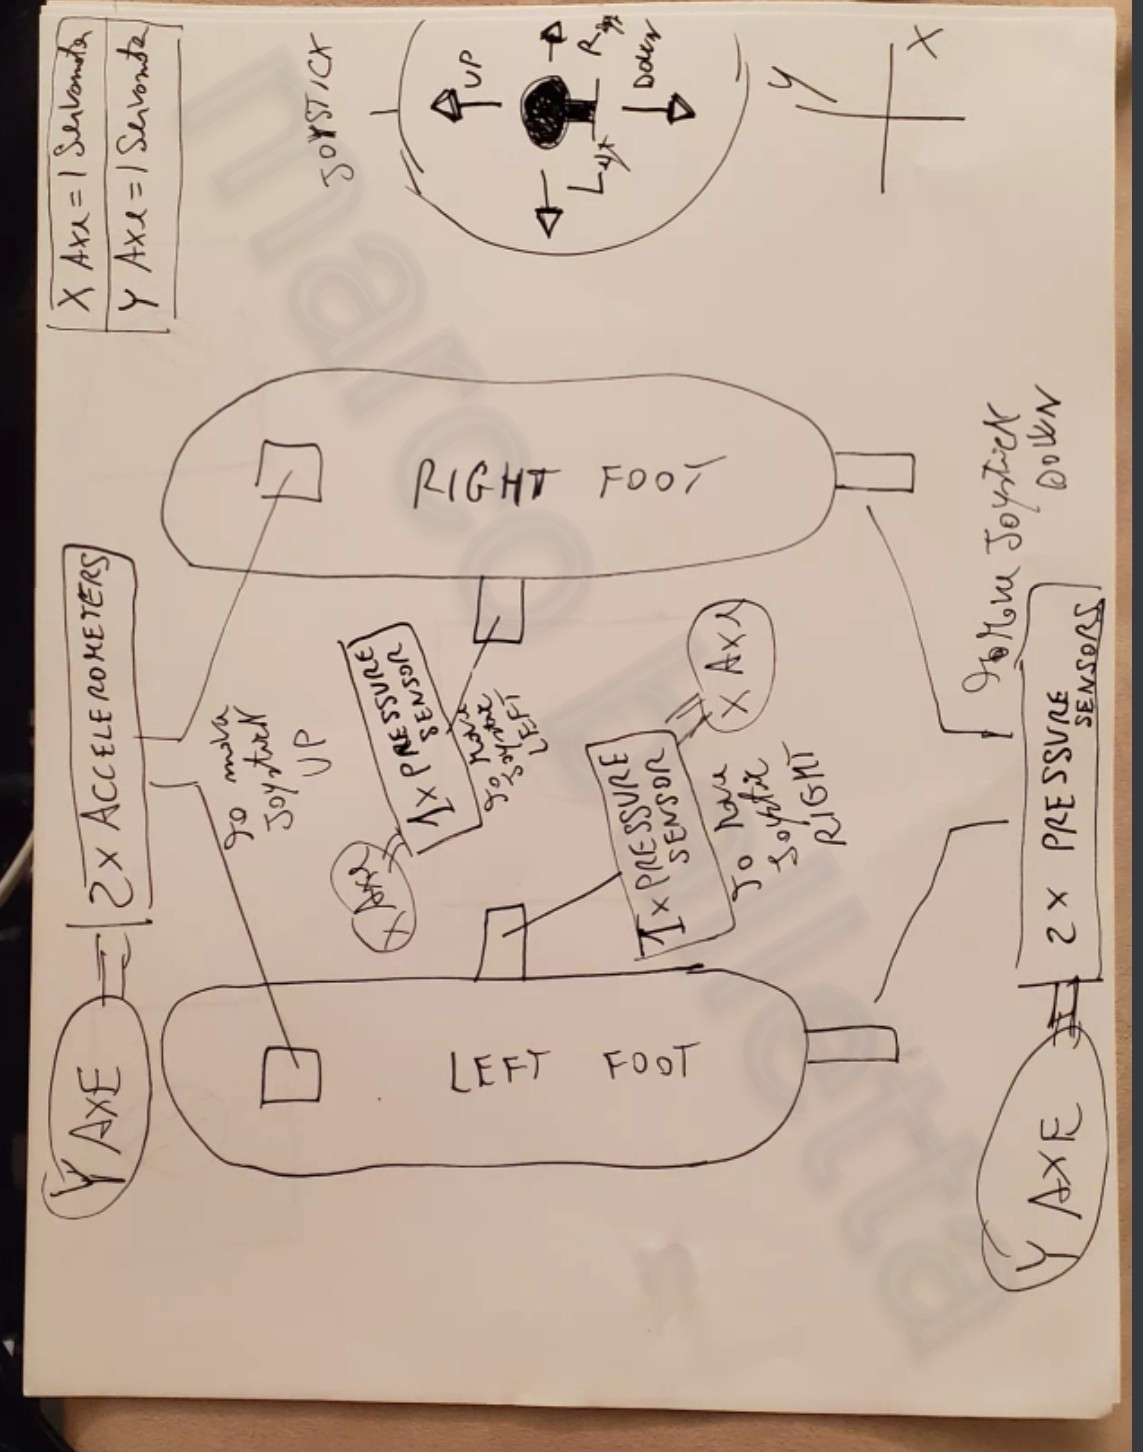 Y AXE
2x ACCELEROMETERS
X Axe = 1 Servomotor
Y Axe = 1 Servomotor
to move
Joystick
UP
JOYSTICK
UP
Left
Right
Down
Y
X
X Axe
1x PRESSURE
SENSOR
to move
Joystick
LEFT
LEFT FOOT
RIGHT FOOT
1x PRESSURE
SENSOR
X Axe
to move
Joystick
RIGHT
to Move Joystick
DOWN
Y AXE
2x PRESSURE
SENSORS
marco pilletta